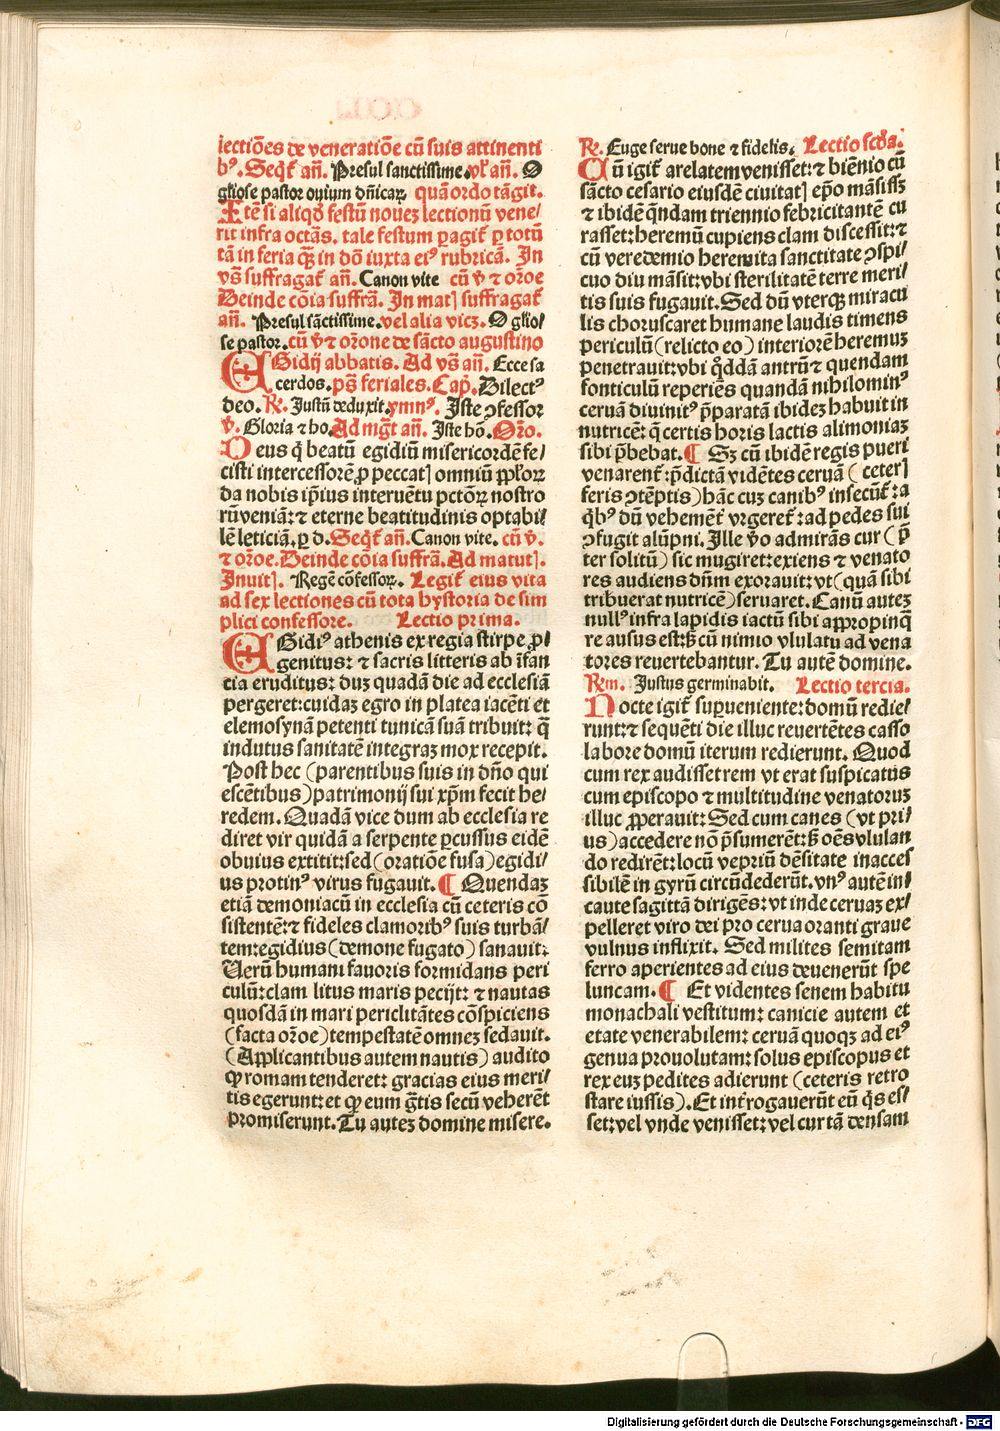 lectiões de veneratiõe cũ suis attinenti
bꝰ. Seqt̃ añ. Presul sanctissime. vl̃ añ. O
gl̃iose pastor ouium dñicaꝝ quãdo tãgit.
Itẽ si aliqd̾ festũ nouez lectionũ vene⸗
rit infra octãs. tale festum ꝑagit̃ ꝑ totũ
tã in feria qꝫ in dõ iuxta eiꝰ rubricã. In
vs̃ suffragat̃ añ. Canon vite cũ v̾ ⁊ or̃oe
Deinde cõia suffrã. In matꝭ suffragat̃
añ. Presul sãctissime. vel alia vicꝫ. O gl̃io⸗
se pastor. cũ v̾ ⁊ or̃one de sãcto augustino
EGidij abbatis. Ad vs̃ añ. Ecce sa
cerdos. ps̃ feriales. Cap̃. Dilectꝰ
deo. ℟. Justũ deduxit. ymnꝰ. Iste ↄfessor
v̾. Gloria ⁊ ho. Ad mgt̃ añ. Iste hõ. Or̃o.
DEus q̇ beatũ egidiũ misericordẽ fe⸗
cisti intercessorẽ ꝓ peccatꝭ omniũ pp̃loꝝ
da nobis ip̃ius interuẽtu pctõꝝ nostro
rũ veniã: ⁊ eterne beatitudinis optabi⸗
lẽ leticiã. ꝑ d. Seqt̃ añ. Canon vite. cũ v̾.
⁊ or̃oe. Deinde cõia suffrã. Ad matutꝭ.
Inuitꝭ. Regẽ cõfessoꝝ. Legit̃ eius vita
ad sex lectiones cũ tota hystoria de sim
plici confessore. Lectio prima.
EGidiꝰ athenis ex regia stirpe ꝓ⸗
genitus: ⁊ sacris litteris ab ĩfan
tia eruditus: duꝫ quadã die ad ecclesiã
pergeret: cuidaꝫ egro in platea iacẽti et
elemosynã petenti tunicã suã tribuit: q̃
indutus sanitatẽ integraꝫ mox recepit.
Post hec (parentibus suis in dño qui
escẽtibus) patrimonij sui xp̃m fecit he⸗
redem. Quadã vice dum ab ecclesia re
diret vir quidã a serpente ꝑcussus eidẽ
obuius extitit: sed (oratiõe fusa) egidi⸗
us protinꝰ virus fugauit. ¶ Quendaꝫ
etiã demoniacũ in ecclesia cũ ceteris cõ
sistentẽ: ⁊ fideles clamoribꝰ suis turbã⸗
tem: egidius (demone fugato) sanauit:
Uerũ humani fauoris formidans peri
culũ: clam litus maris pecijt: ⁊ nautas
quosdã in mari periclitãtes cõspiciens
(facta or̃oe) tempestatẽ omneꝫ sedauit.
(Applicantibus autem nautis) audito
ꝙ romam tenderet: gracias eius meri⸗
tis egerunt: et ꝙ eum gr̃tis secũ veherẽt
promiserunt. Tu auteꝫ domine misere.
℟. Euge serue bone ⁊ fidelis. Lectio scd̾a.
CUm igit̃ arelatem venisset: ⁊ biẽnio cũ
sãcto cesario eiusdẽ ciuitatꝭ ep̃o mãsissꝫ
⁊ ibidẽ q̃ndam triennio febricitantẽ cu
rasset: heremũ cupiens clam discessit: ⁊
cũ veredemio heremita sanctitate ↄspi⸗
cuo diu mãsit: vbi sterilitatẽ terre meri⸗
tis suis fugauit. Sed dũ vterqꝫ miracu
lis choruscaret humane laudis timens
periculũ (relicto eo) interiorẽ heremuꝫ
penetrauit: vbi q̊ddã antrũ ⁊ quendam
fonticulũ reperiẽs quandã nihilominꝰ
ceruã diuinitꝰ p̃paratã ibideꝫ habuit in
nutricẽ: q̃ certis horis lactis alimoniaꝫ
sibi p̃bebat. ¶ Sꝫ cũ ibidẽ regis pueri
venarent̃: p̃dictã vidẽtes ceruã (ceterꝭ
feris ↄtẽptis) hãc cuꝫ canibꝰ insecũt̃: a
q̇bꝰ dũ vehemẽt̾ vrgeret̃: ad pedes sui
ↄfugit alũpni. Ille v̾o admirãs cur (p̃⸗
ter solitũ) sic mugiret: exiens ⁊ venato
res audiens dñm exorauit: vt (quã sibi
tribuerat nutricẽ) seruaret. Canũ auteꝫ
nullꝰ infra lapidis iactũ sibi appropinq̃
re ausus est: sꝫ cũ nimio vlulatu ad vena
tores reuertebantur. Tu autẽ domine.
℟m. Justus germinabit. Lectio tercia.
NOcte igit̃ suꝑueniente: domũ redie⸗
runt: ⁊ sequẽti die illuc reuertẽtes casso
labore domũ iterum redierunt. Quod
cum rex audisset rem vt erat suspicatus
cum episcopo ⁊ multitudine venatoruꝫ
illuc ꝓperauit: Sed cum canes (vt pri⸗
us) accedere nõ p̃sumerẽt: sꝫ oẽs vlulan
do redirẽt: locũ vepriũ dẽsitate inacces
sibilẽ in gyrũ circũdederũt. vnꝰ autẽ in⸗
caute sagittã dirigẽs: vt inde ceruaꝫ ex⸗
pelleret viro dei pro cerua oranti graue
vulnus inflixit. Sed milites semitam
ferro aperientes ad eius deuenerũt spe
luncam. ¶ Et videntes senem habitu
monachali vestitum: canicie autem et
etate venerabilem: ceruã quoqꝫ ad eiꝰ
genua prouolutam: solus episcopus et
rex euꝫ pedites adierunt (ceteris retro
stare iussis). Et int̾rogauerũt eũ q̇s es⸗
set: vel vnde venisset: vel cur tã densam
Digitalisierung gefördert durch die Deutsche Forschungsgemeinschaft - DFG